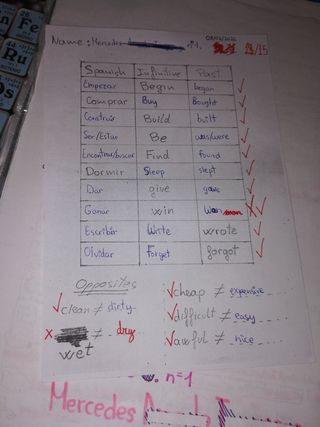 Fe
44
Ru
Os
Name: Mercedes nº1.
Spanish Infinitive Past
Empezar Begin began
Comprar Buy Bought
Construir Build built
Ser/Estar Be was/were
Encontrar/buscar Find found
Dormir Sleep slept
Dar give gave
Ganar win Wan won
Escribir Write wrote
Olvidar Forget forgot
Opposites
clean ≠ dirty
≠ dry
wet
cheap ≠ expensive
difficult ≠ easy
awful ≠ nice
n=1
Mercedes